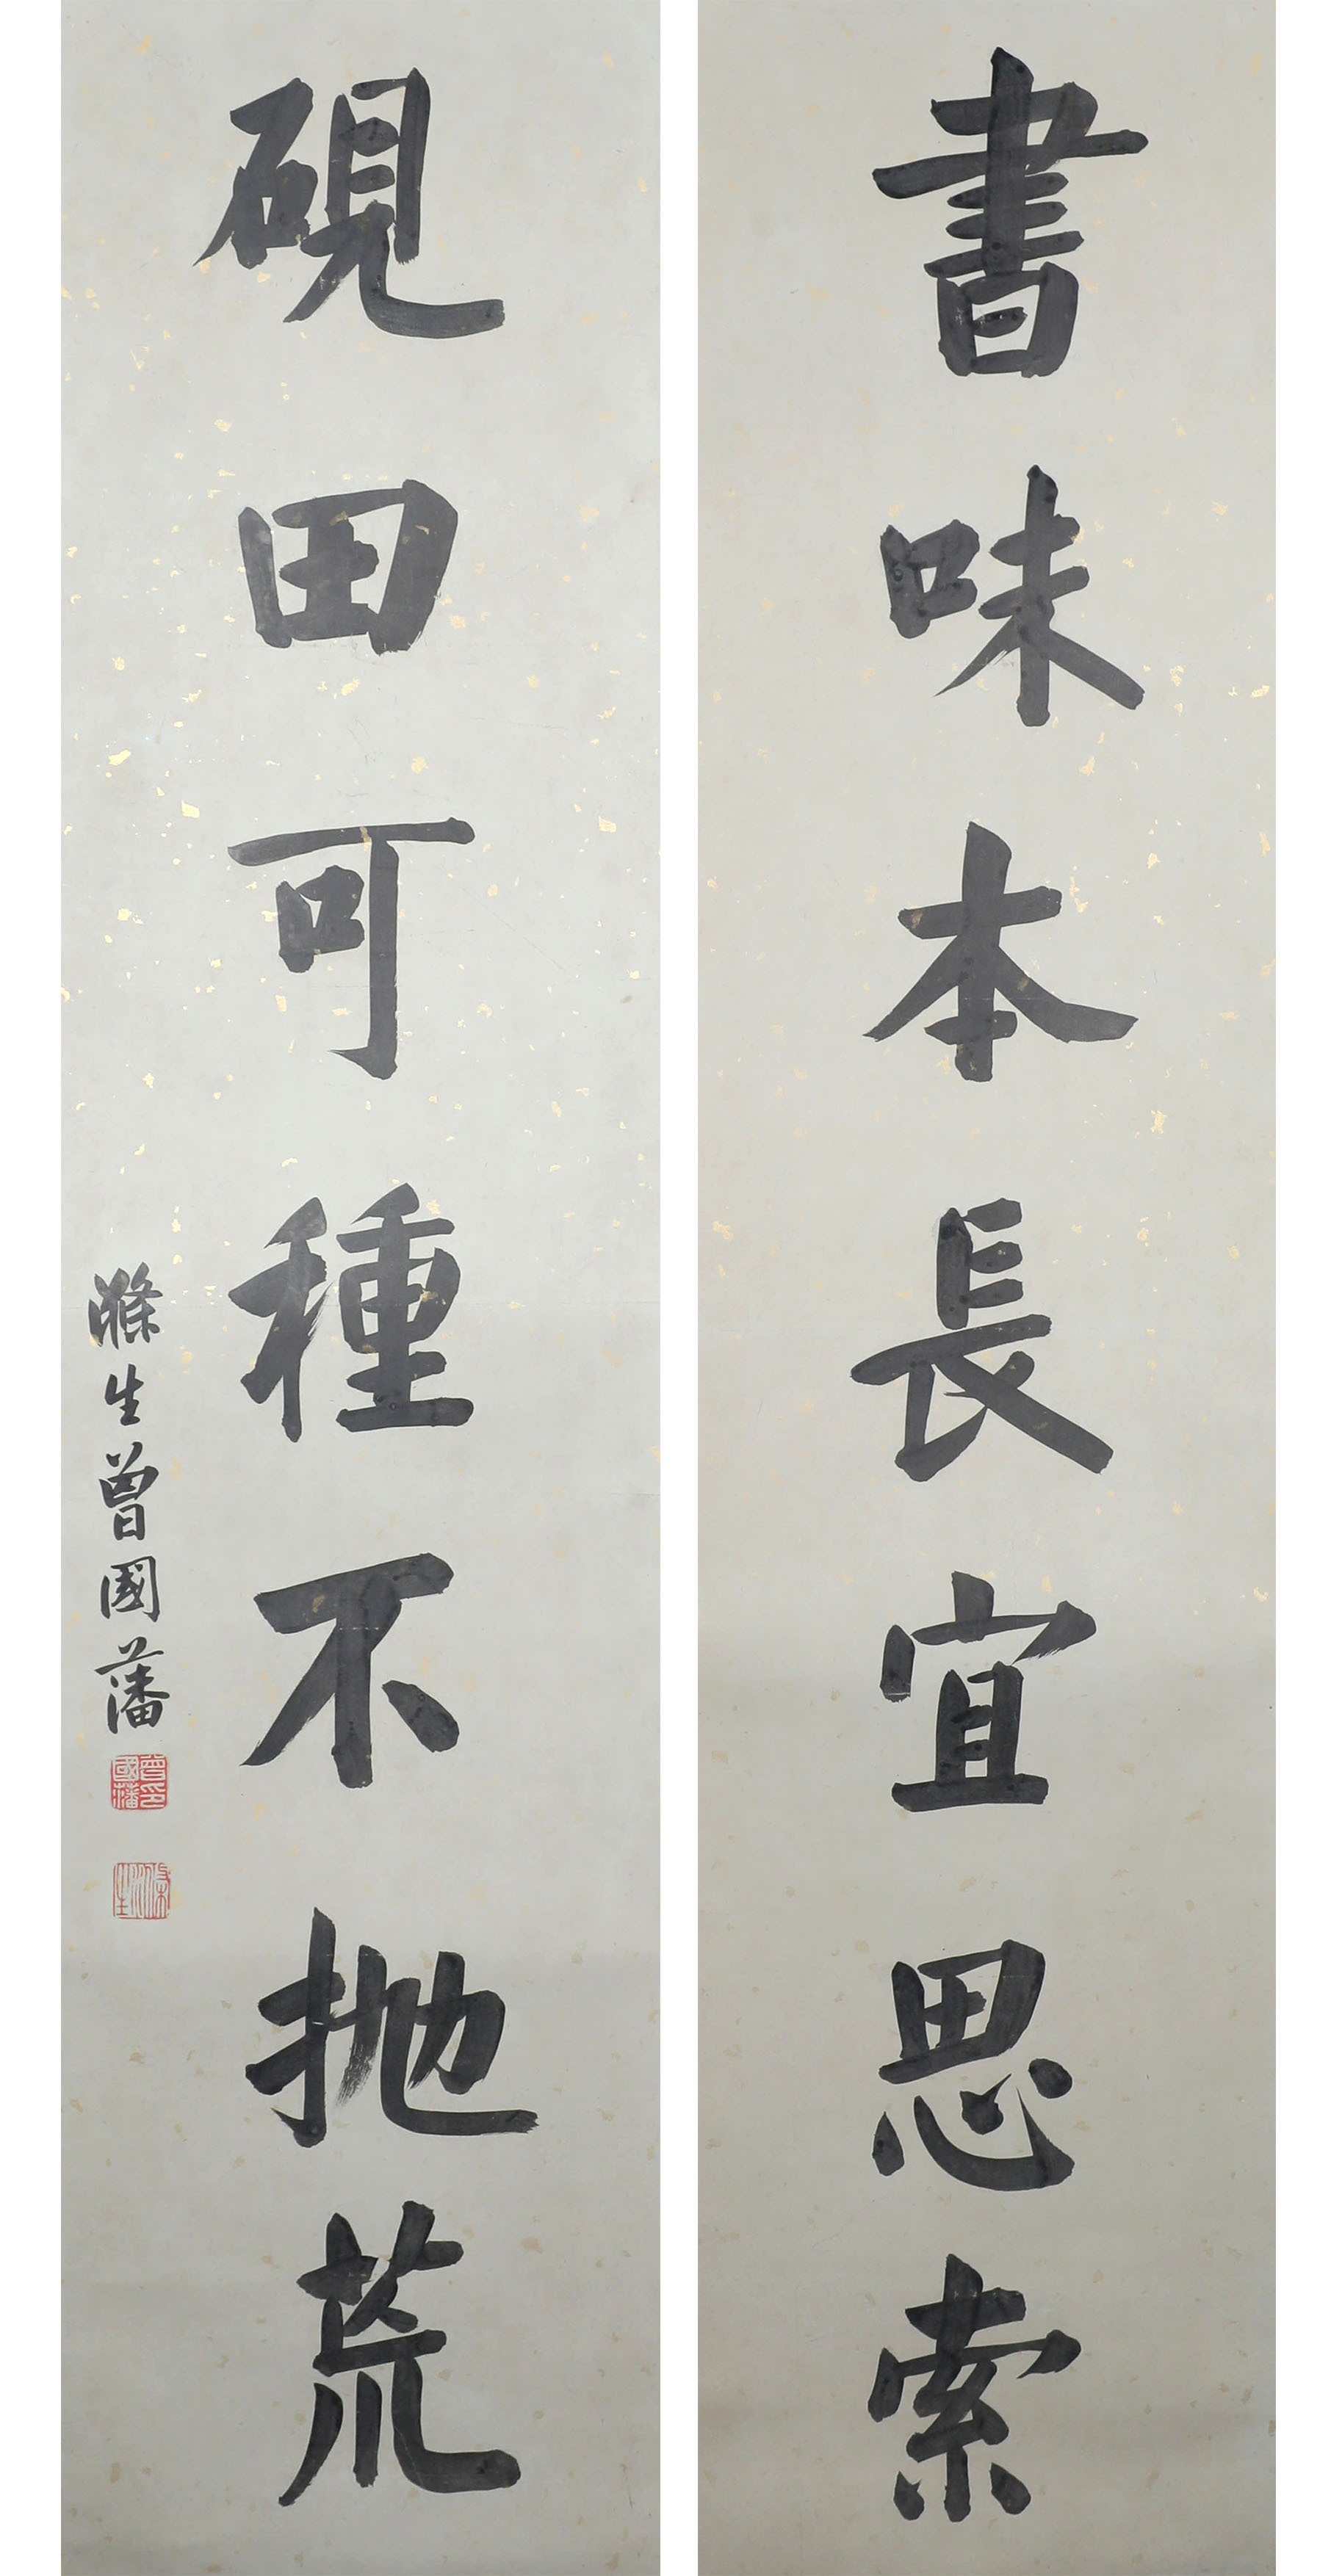 書味本長宜思索
硯田可種不拋荒
滌生曾國藩
曾印國藩
滌生